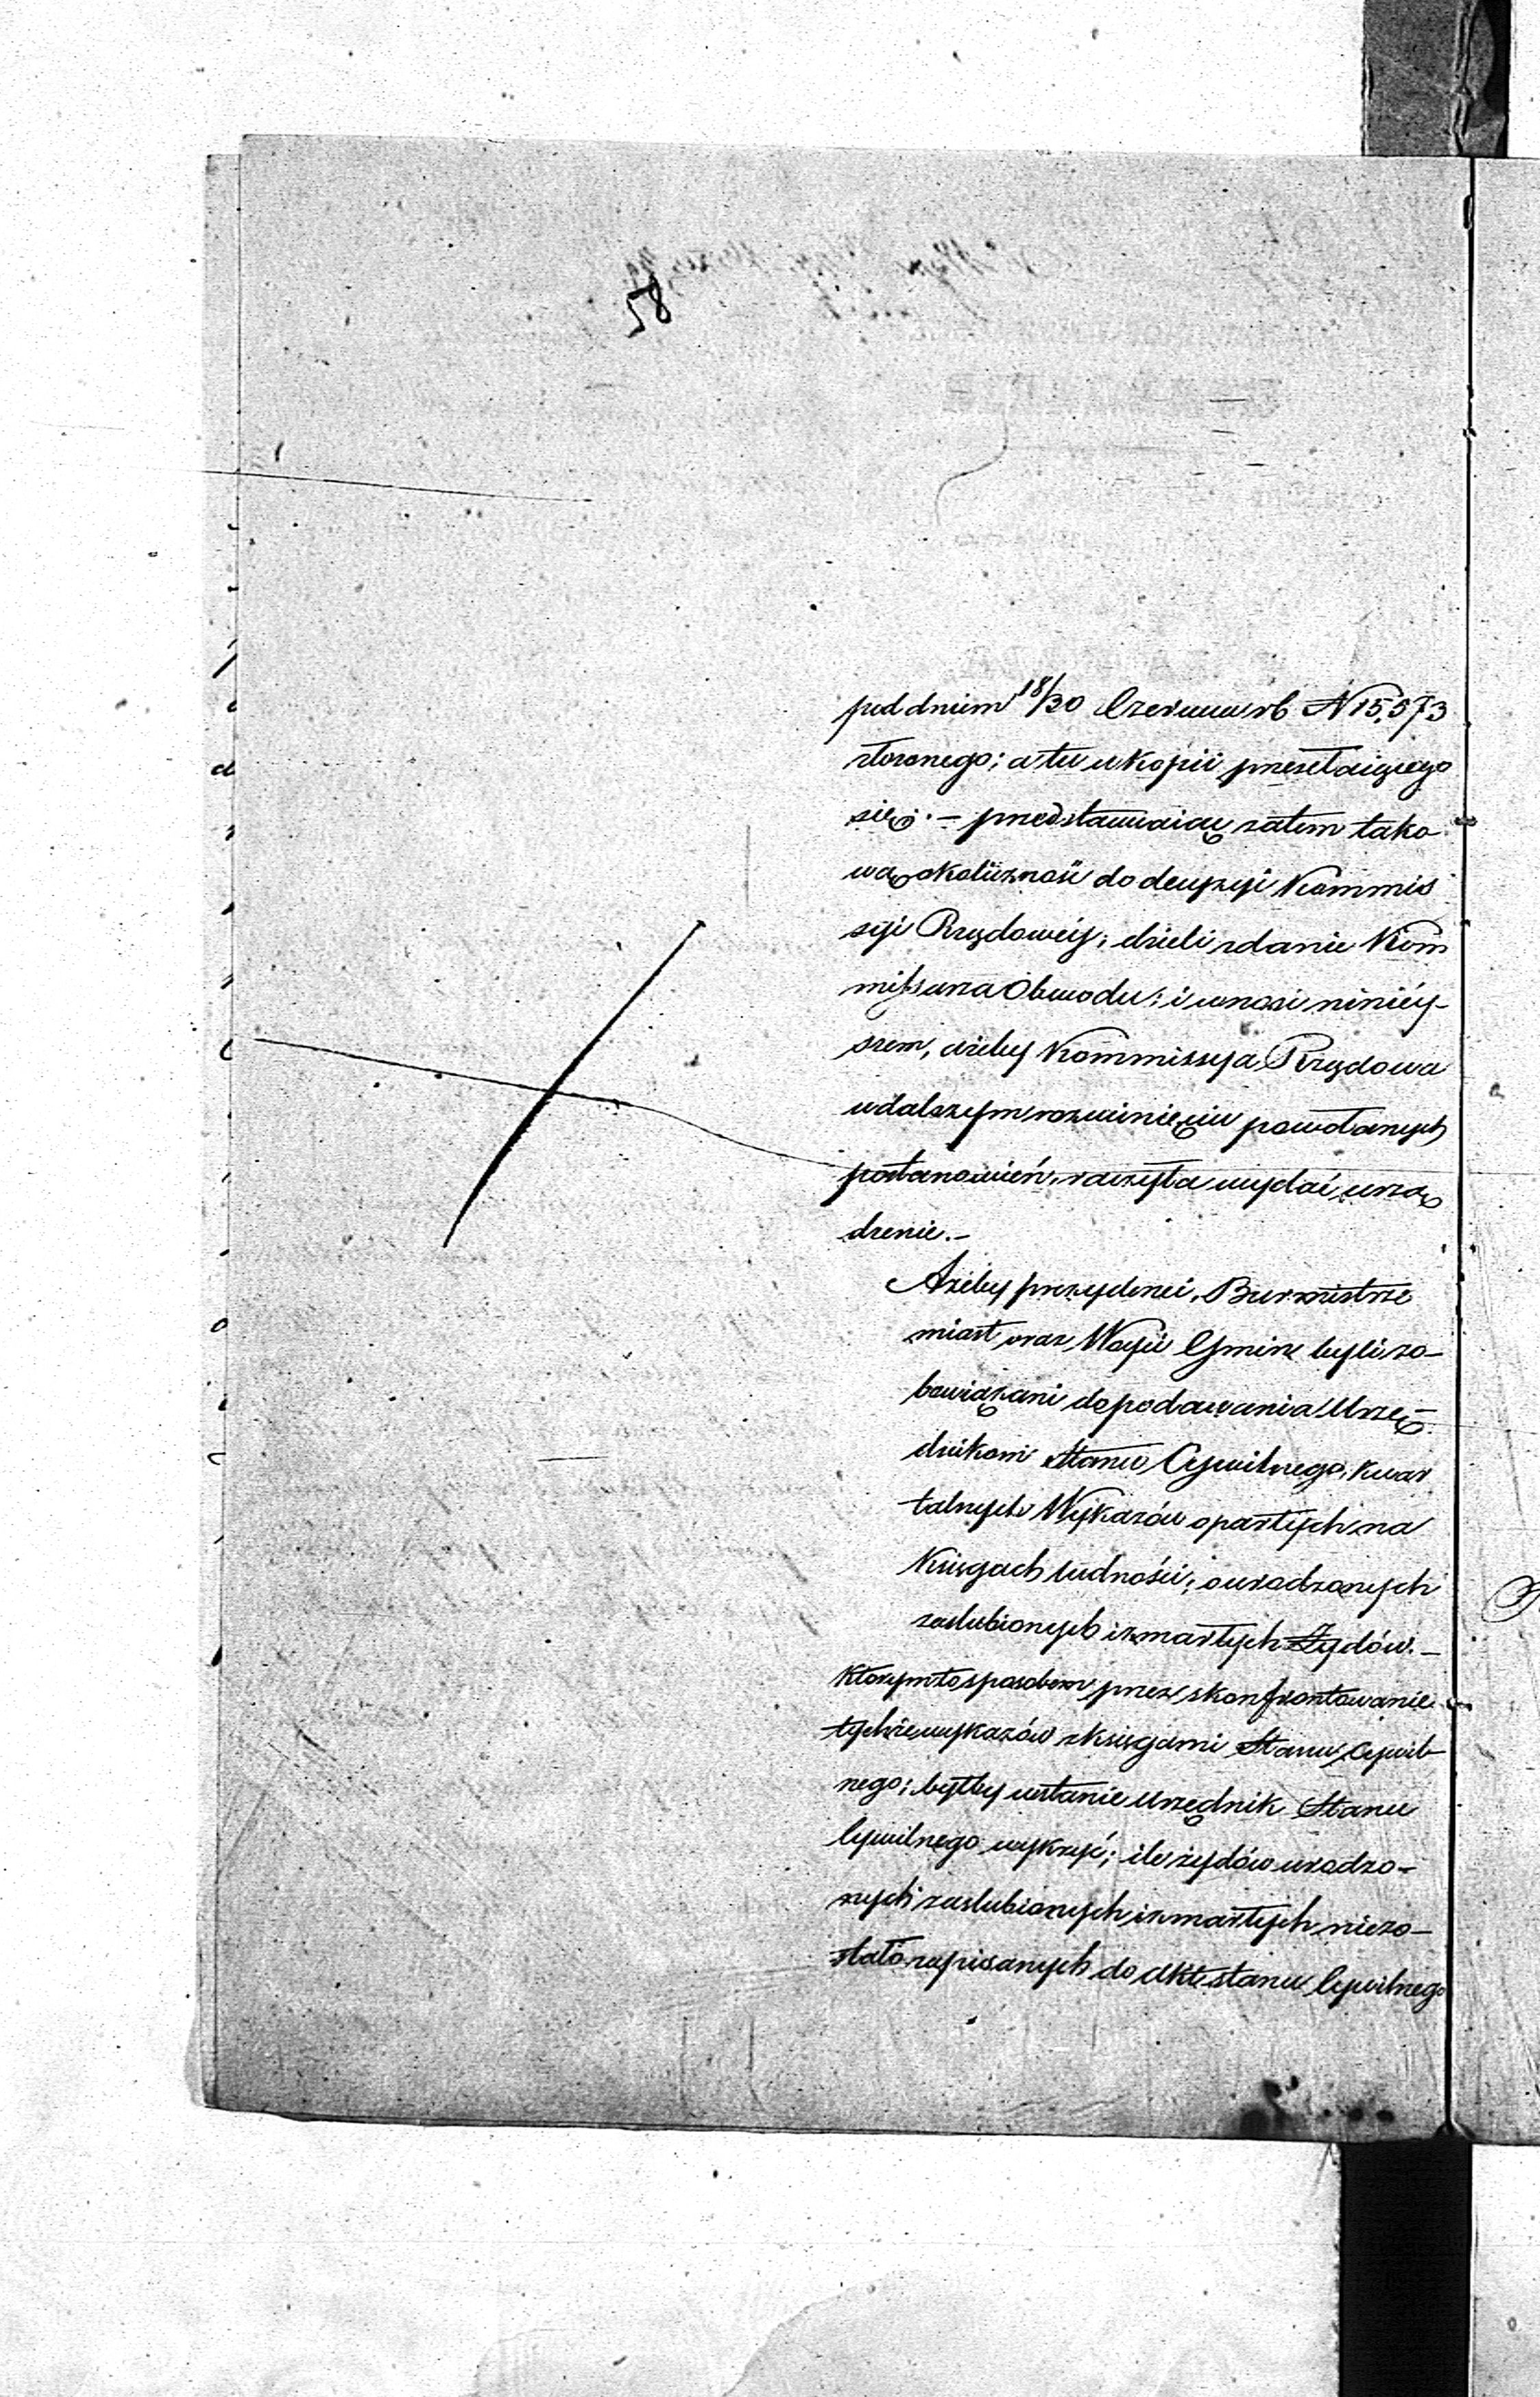 58
pod dniem 18/30 Czerwca rb N 15,573
złożonego; a tu w kopii przesełaiącego
się. – przedstawiaiąc zatem tako
wą okoliczność do decyzyi Kommis
syi Rządowéy; dzieli zdanie Kom
missarza Obwodu; i wnosi niniéy-
szem, ażeby Kommissya Rządowa
w dalszym rozwinięciu powołanych
postanowień, raczyła wydać urzą
dzenie.–
Ażeby prezydenci, Burmistrze
miast oraz Wóyci Gmin byli zo-
bowiązani do podawania Urzę-
dnikom Stanu Cywilnego, kwar
talnych Wykazów opartych na
Księgach ludności; o urodzonych
zaslubionych i zmarłych Żydów.–
którym to sposobem przez skonfrontowanie
tychże wykazów z księgami Stanu Cywil-
nego; byłby w stanie urzędnik Stanu
Cywilnego wykryć; ile żydów urodzo-
nych zaslubionych i zmarłych niezo-
stało zapisanych do akt stanu Cywilnego